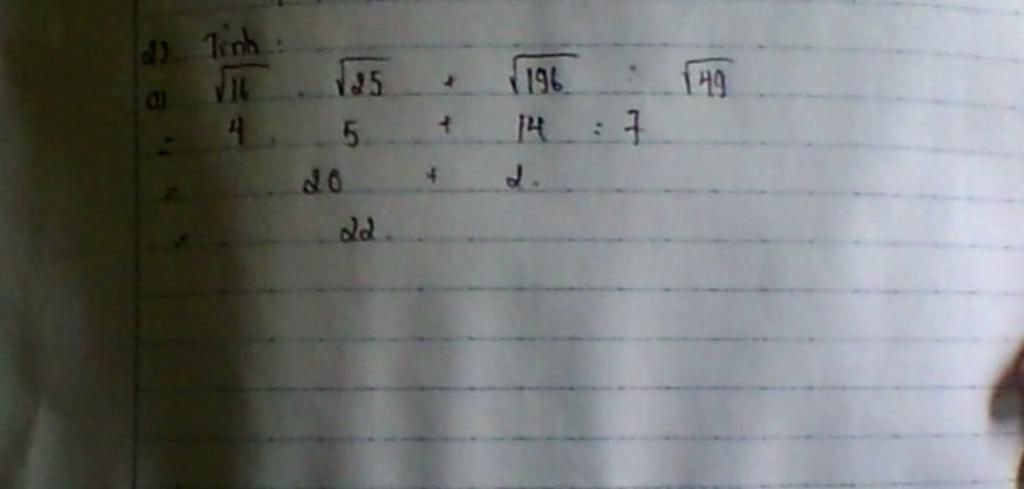 2) Tính :
a) √16 . √25 + √196 : √49
= 4 . 5 + 14 : 7
= 20 + 2.
= 22.